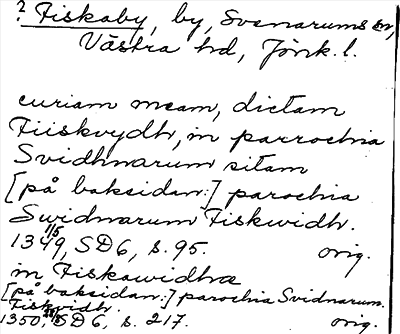 ? Fiskaby, by, Svenarums sn,
Västra hd, Jönk. l.
curiam meam, dictam
Fiiskvydh, in parrochia
Svidhnarum sitam
[på baksidan:] parochia
Swidnarum Fiskwidh.
1349 1/5, SD6, s. 95. orig.
in Fiskawidhæ
[på baksidan:] parochia Svidnarum.
Fiskvidh.
1350, SD 6, s. 217. orig.